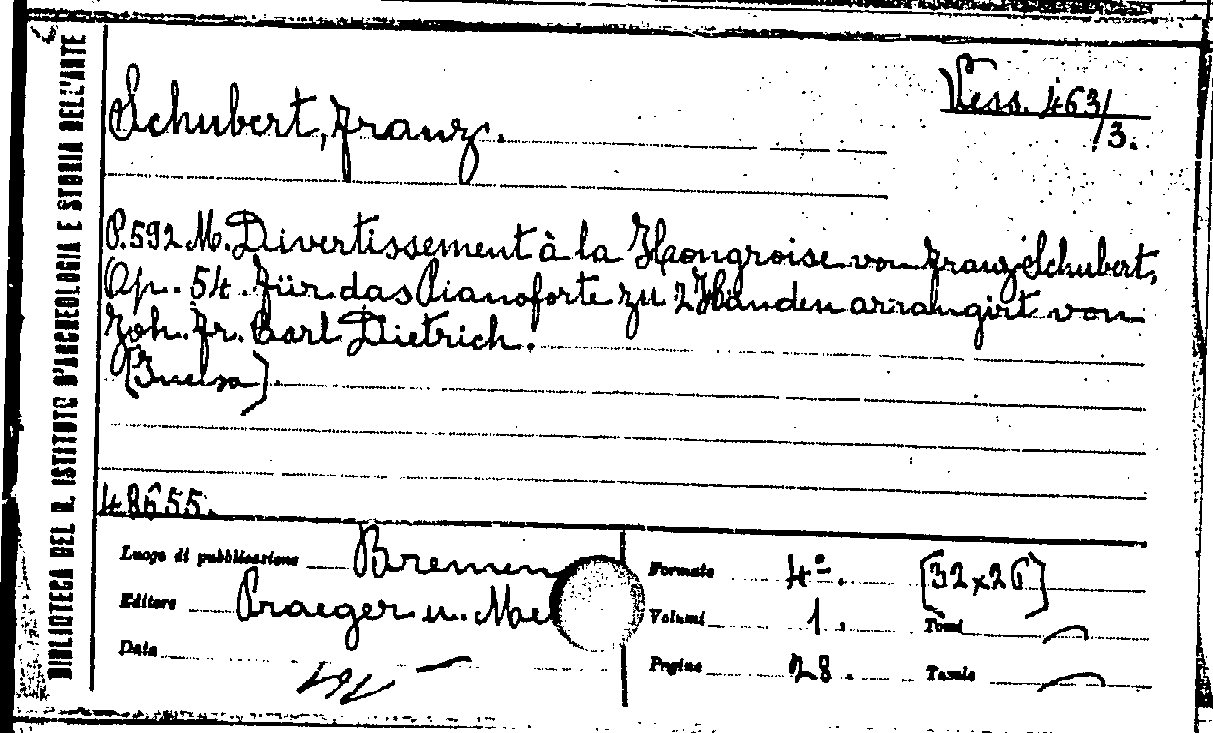 BIBLIOTECA DEL R. ISTITUTO D'ARCHEOLOGIA E STORIA DELL'ARTE
Vess. 463/3.
Schubert, Franz.
P.592 M. Divertissement à la Hongroise von Franz Schubert,
Op. 54. Für das Pianoforte zu 2 Händen arrangirt von
Joh. Fr. Carl Dietrich.
48655.
Luogo di pubblicazione Bremen
Editore Praeger u. Me
Data —
Formato 4º. [32x26]
Volumi 1. Tomi —
Pagine 28. Tavole —